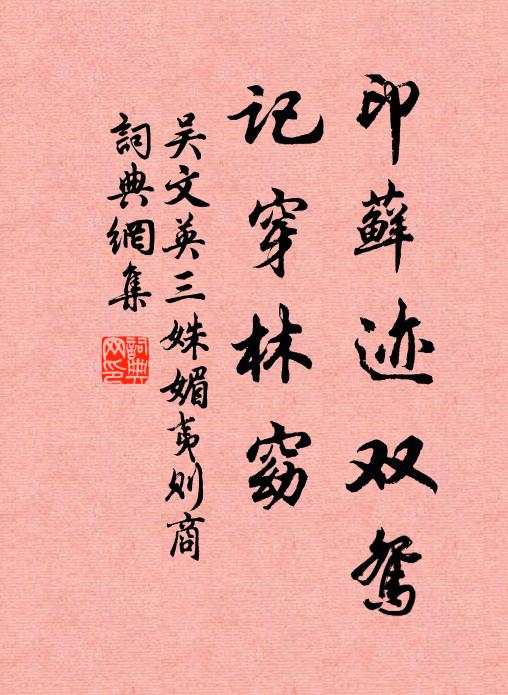 印藓迹双鸳
记穿林窈
吴文英三姝媚夷则商
詞典網集
詞典網印